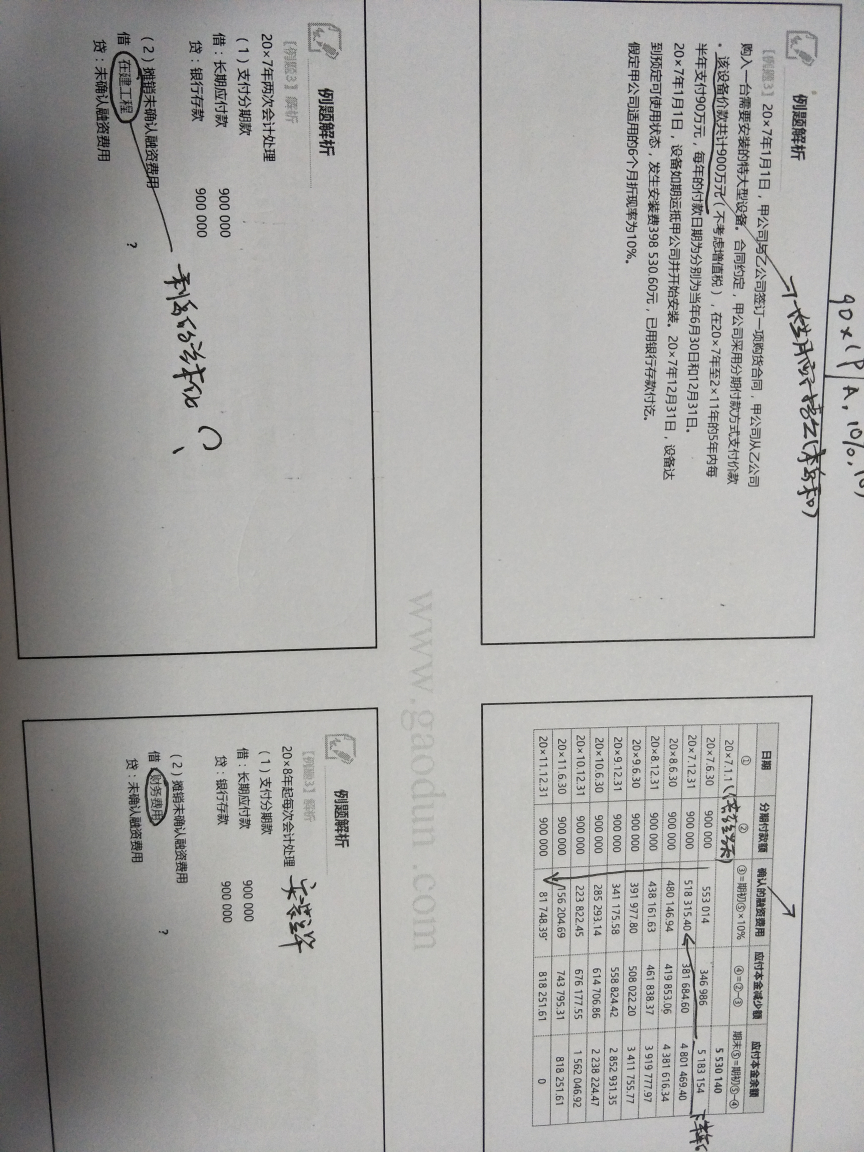 90×(P/A,10%,10)
例题解析
【例题3】20×7年1月1日，甲公司与乙公司签订一项购货合同，甲公司从乙公司
购入一台需要安装的特大型设备。合同约定，甲公司采用分期付款方式支付价款
。该设备价款共计900万元（不考虑增值税），在20×7年至2×11年的5年内每
半年支付90万元，每年的付款日期为分别为当年6月30日和12月31日。
20×7年1月1日，设备如期运抵甲公司并开始安装。20×7年12月31日，设备达
到预定可使用状态，发生安装费398 530.60元，已用银行存款付讫。
假定甲公司适用的6个月折现率为10%。
日期 分期付款额 确认的融资费用 应付本金减少额 应付本金余额
① ② ③=期初⑤×10% ④=②-③ 期末⑤=期初⑤-④
20×7.1.1 5 530 140
20×7.6.30 900 000 553 014 346 986 5 183 154
20×7.12.31 900 000 518 315.40 381 684.60 4 801 469.40
20×8.6.30 900 000 480 146.94 419 853.06 4 381 616.34
20×8.12.31 900 000 438 161.63 461 838.37 3 919 777.97
20×9.6.30 900 000 391 977.80 508 022.20 3 411 755.77
20×9.12.31 900 000 341 175.58 558 824.42 2 852 931.35
20×10.6.30 900 000 285 293.14 614 706.86 2 238 224.47
20×10.12.31 900 000 223 822.45 676 177.55 1 562 046.92
20×11.6.30 900 000 156 204.69 743 795.31 818 251.61
20×11.12.31 900 000 81 748.39* 818 251.61 0
例题解析
【例题3】解析
20×7年两次会计处理
（1）支付分期款
借：长期应付款 900 000
贷：银行存款 900 000
（2）摊销未确认融资费用
借：在建工程 ?
贷：未确认融资费用
利息的资本化
例题解析
【例题3】解析
20×8年起每次会计处理
（1）支付分期款
借：长期应付款 900 000
贷：银行存款 900 000
（2）摊销未确认融资费用
借：财务费用 ?
贷：未确认融资费用
www.gaodun.com